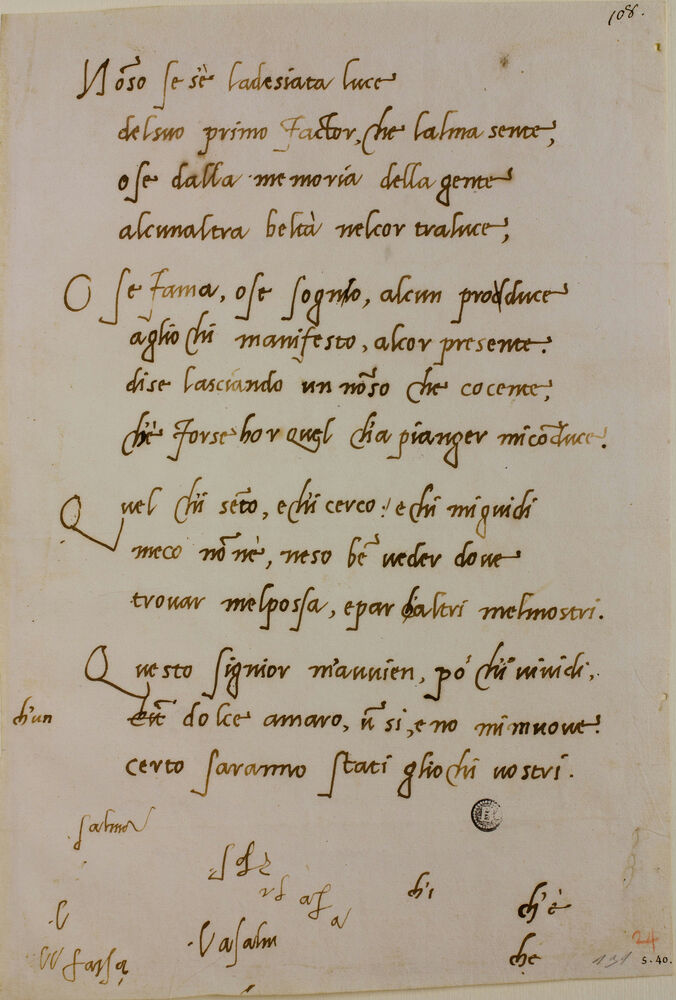 108.
Nõso se s'è ladesiata luce
delsuo primo Factor, che lalma sente,
ose dalla memoria della gente
alcunaltra beltà nelcor traluce,
O se Fama, ose sognio, alcun produce
aglio chi manifesto, alcor presente.
dise lasciando un nõso che cocente,
ch'è Forse hor quel ch'a pianger micõduce.
Quel ch'i sẽto, e ch'i cerco: e chi miguidi
meco nõ nè, neso bẽ ueder doue
trouar melpossa, epar ch'altri melmostri.
Questo signior m'auuien, po' ch'i' uiuidi,
ch'un dolce amaro, ũ si, e no mi muoue:
certo saranno stati gliochi uostri.
salmo
ch'i
ch'è
Vasalm
che
24
5.40.